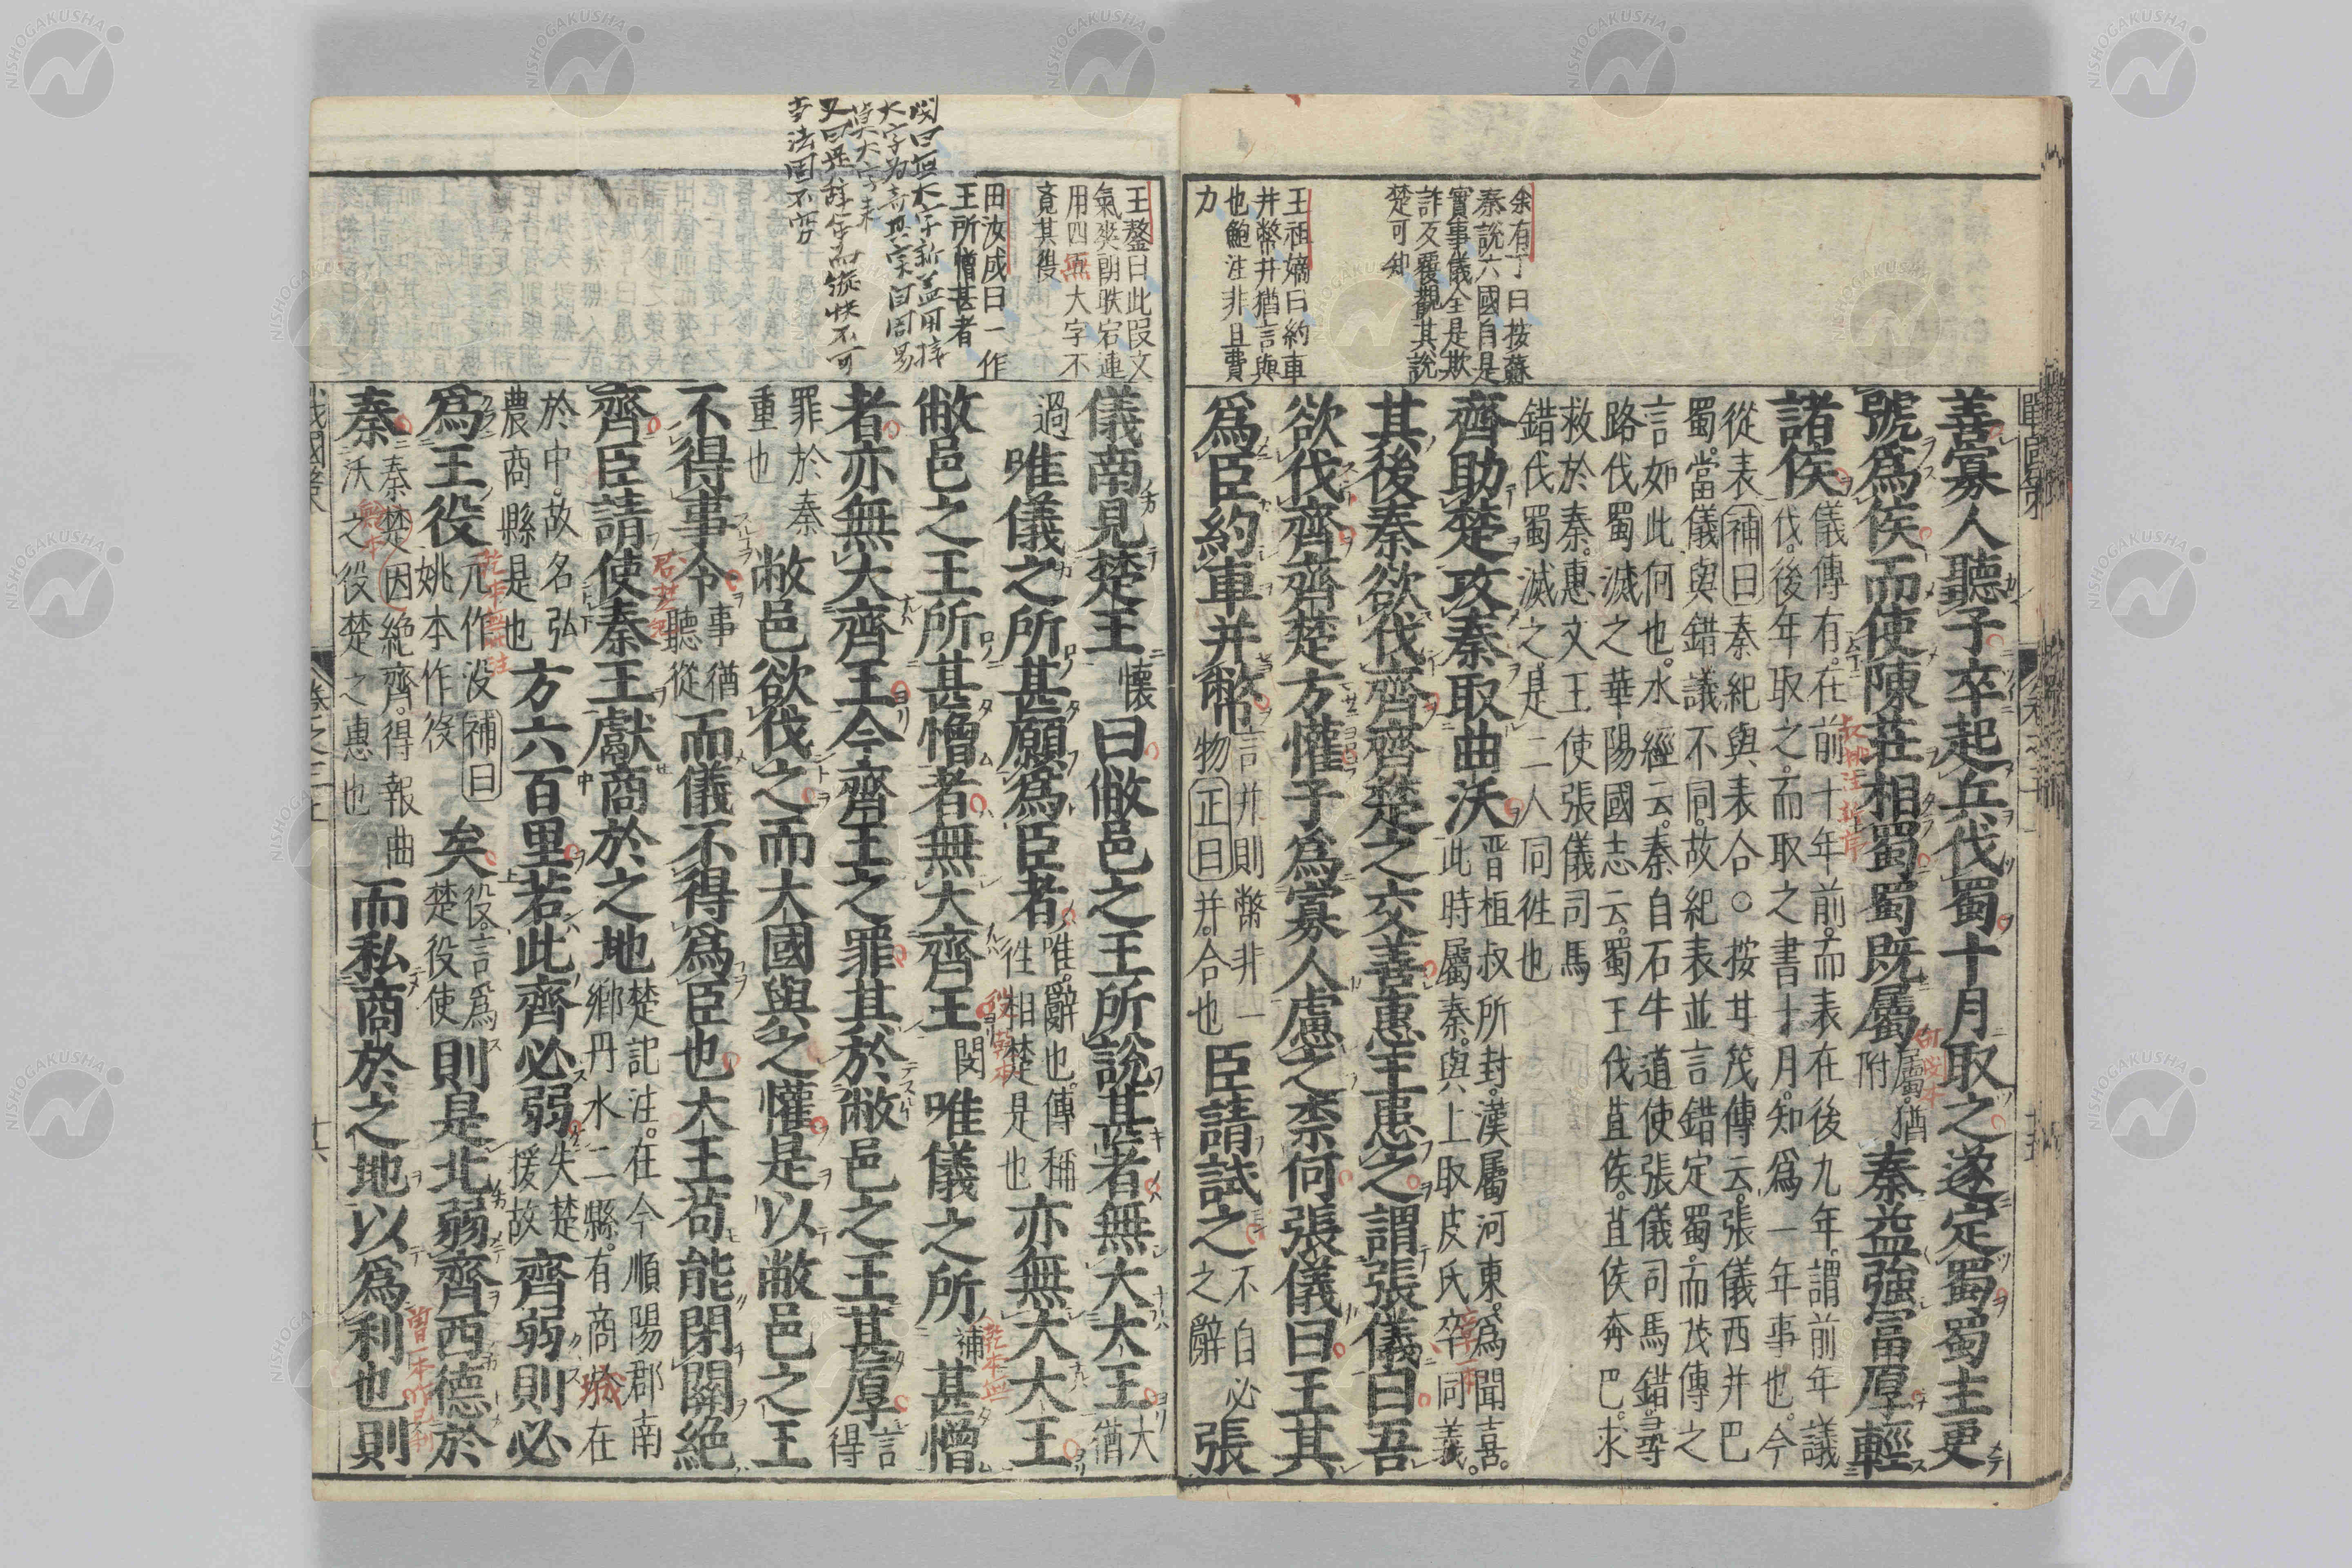 余有丁曰按蘇
秦說六國自是
實事儀全是欺
詐反覆觀其說
楚可知
王祖嫡曰約車
并幣并猶言與
也鮑注非且費
力
善寡人聽子卒起兵伐蜀十月取之遂定蜀蜀主更
號爲侯而使陳莊相蜀蜀既屬屬猶附秦益強富厚輕
諸侯儀傳有在前十年前而表在後九年謂前年議伐後年取之而取之書十月知爲一年事也今
從表補曰秦紀與表合○按甘茂傳云張儀西并巴
蜀當儀與錯議不同故紀表並言錯定蜀而茂傳之
言如此何也水經云秦自石牛道使張儀司馬錯尋
路伐蜀滅之華陽國志云蜀王伐苴侯苴侯奔巴求
救於秦惠文王使張儀司馬
錯伐蜀滅之是二人同徃也
齊助楚攻秦取曲沃晋桓叔所封漢屬河東爲聞喜此時屬秦與上取皮氏卒同義
其後秦欲伐齊齊楚之交善惠王患之謂張儀曰吾
欲伐齊齊楚方懽子爲寡人慮之柰何張儀曰王其
爲臣約車并幣言并則幣非一物正曰并合也臣請試之不自必之辭張
王鏊曰此叚文
氣爽朗昳宕連
用四無大字不
竟其後
田汝成曰一作
王所憎甚者
儀南見楚王懷曰敝邑之王所說甚者無大大王大猶
過唯儀之所甚願爲臣者唯辭也傳稱徃相楚是也亦無大大王
敝邑之王所甚憎者無大齊王閔唯儀之所補甚憎
者亦無大齊王今齊王之罪其於敝邑之王甚厚言得
罪於秦重也敝邑欲伐之而大國與之懽是以敝邑之王
不得事令事猶聽從而儀不得爲臣也大王苟能閉關絕
齊臣請使秦王獻商於之地楚記注在今順陽郡南鄉丹水二縣有商城在
於中故名弘農商縣是也方六百里若此齊必弱失楚援故齊弱則必
爲王役元作没補曰姚本作役矣役言爲楚役使則是北弱齊西德於
秦秦楚因絕齊得報曲沃之役楚之惠也而私商於之地以爲利也則